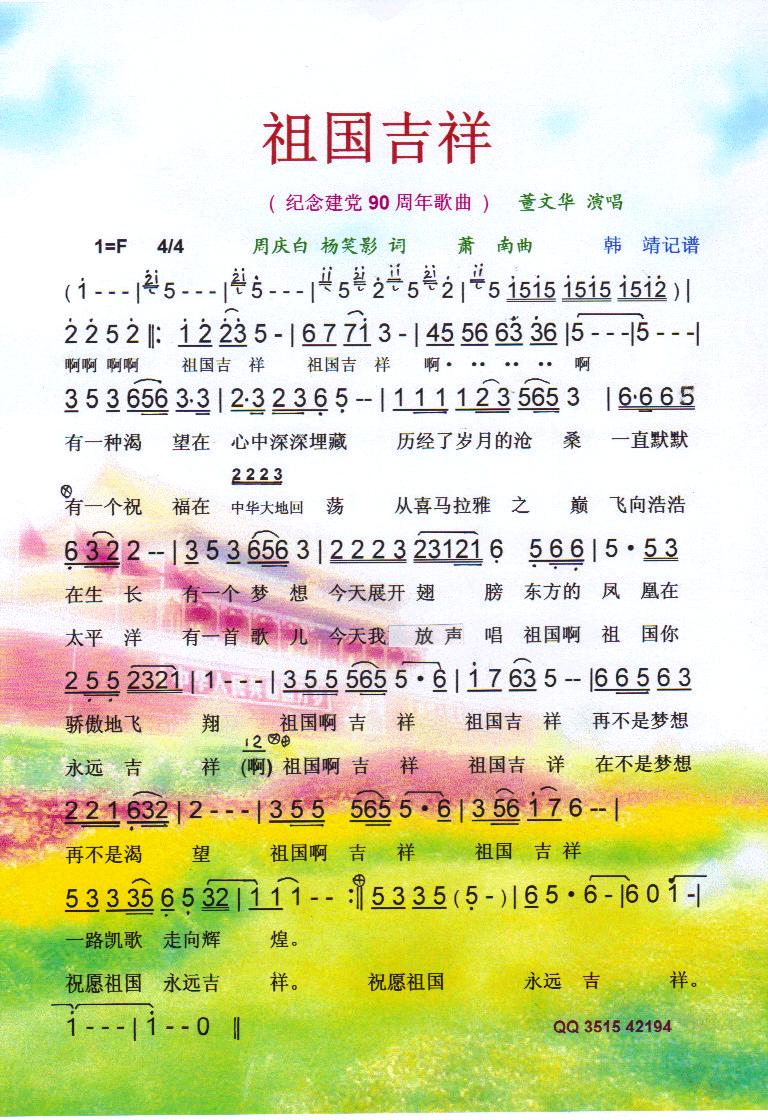 祖国吉祥
( 纪念建党 90 周年歌曲 ) 董文华 演唱
1=F 4/4 周庆白 杨笑影 词 萧 南曲 韩 靖记谱
( 1 - - - | 5 - - - | 5 - - - | 5 2 5 2 | 5 1515 1515 1512 ) |
2 2 5 2 ‖: 1 2 23 5 - | 6 7 71 3 - | 45 56 63 36 | 5 - - - | 5 - - - |
啊啊 啊啊 祖国吉 祥 祖国吉 祥 啊· ·· ·· ·· 啊
3 5 3 656 3·3 | 2·3 2 3 6 5 -- | 1 1 1 1 2 3 565 3 | 6·6 6 5
有一种渴 望在 心中深深埋藏 历经了岁月的沧 桑 一直默默
2 2 2 3
有一个祝 福在 中华大地回 荡 从喜马拉雅 之 巅 飞向浩浩
6 3 2 2 -- | 3 5 3 656 3 | 2 2 2 3 23121 6 5 6 6 | 5 · 5 3
在生 长 有一个 梦 想 今天展开 翅 膀 东方的 凤 凰在
太平 洋 有一首 歌 儿 今天我 放 声 唱 祖国啊 祖 国你
2 5 5 2321 | 1 - - - | 3 5 5 565 5 · 6 | 1 7 63 5 -- | 6 6 5 6 3
骄傲地飞 翔 祖国啊 吉 祥 祖国吉 祥 再不是梦想
1 2
永远 吉 祥 (啊) 祖国啊 吉 祥 祖国吉 详 在不是梦想
2 2 1 632 | 2 - - - | 3 5 5 565 5 · 6 | 3 56 1 7 6 -- |
再不是渴 望 祖国啊 吉 祥 祖国 吉 祥
5 3 3 35 6 5 32 | 1 1 1 - - :‖ 5 3 3 5 ( 5 - ) | 6 5 · 6 - | 6 0 1 - |
一路凯歌 走向辉 煌。
祝愿祖国 永远吉 祥。 祝愿祖国 永远 吉 祥。
1 - - - | 1 - - 0 ‖ QQ 3515 42194